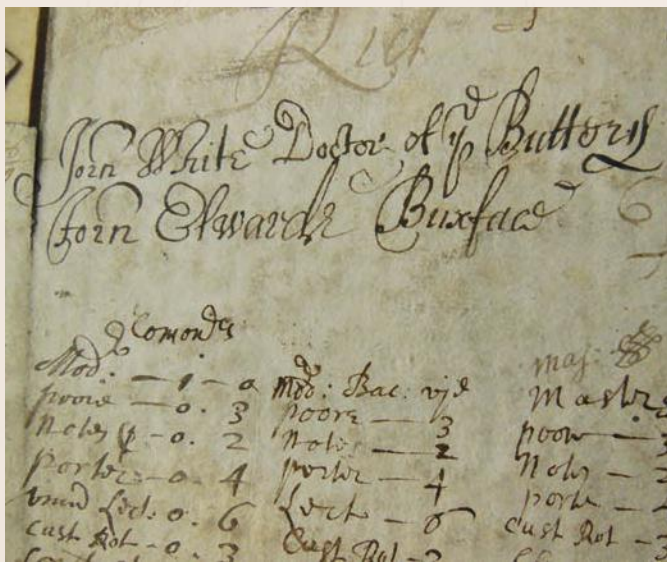 Rich
John White Doctor of yᵉ Buttery
John Edwards Buxface
Comondes
Mod: — 1 — 0
poore — 0. 3
Notes — 0. 2
porter — 0. 4
Lect. 0. 6
Cust Rot — 0. 3
Mod: Bac: vjd
poore — 3
Note — 2
porter — 4
Lect — 6
Cust Rot — 3
maj:
Masters
poore — 3
Notes —
porter —
Cust Rot — 3